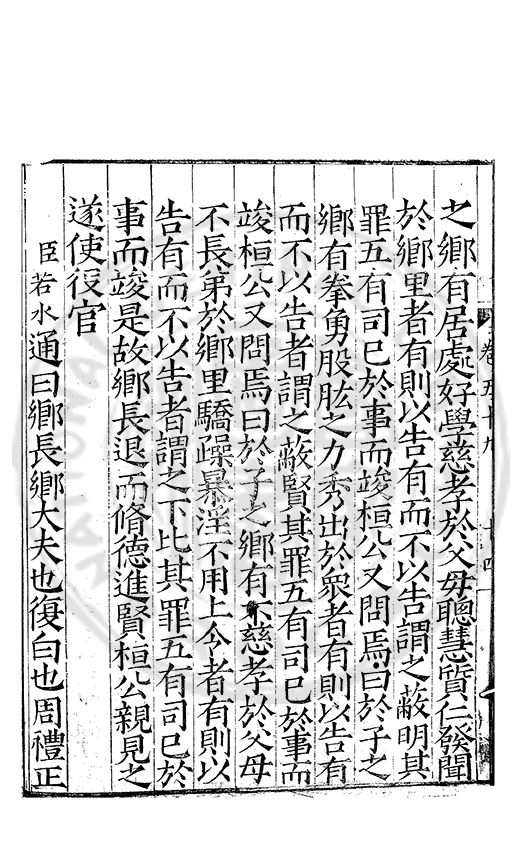 之鄉有居處好學慈孝於父母聰慧質仁發聞
於鄉里者有則以告有而不以告謂之蔽明其
罪五有司已於事而竣桓公又問焉曰於子之
鄉有拳勇股肱之力秀出於衆者有則以告有
而不以告者謂之蔽賢其罪五有司已於事而
竣桓公又問焉曰於子之鄉有不慈孝於父母
不長弟於鄉里驕躁暴淫不用上令者有則以
告有而不以告者謂之下比其罪五有司已於
事而竣是故鄉長退而脩德進賢桓公親見之
遂使役官
臣若水通曰鄉長鄉大夫也復白也周禮正
卷五十九